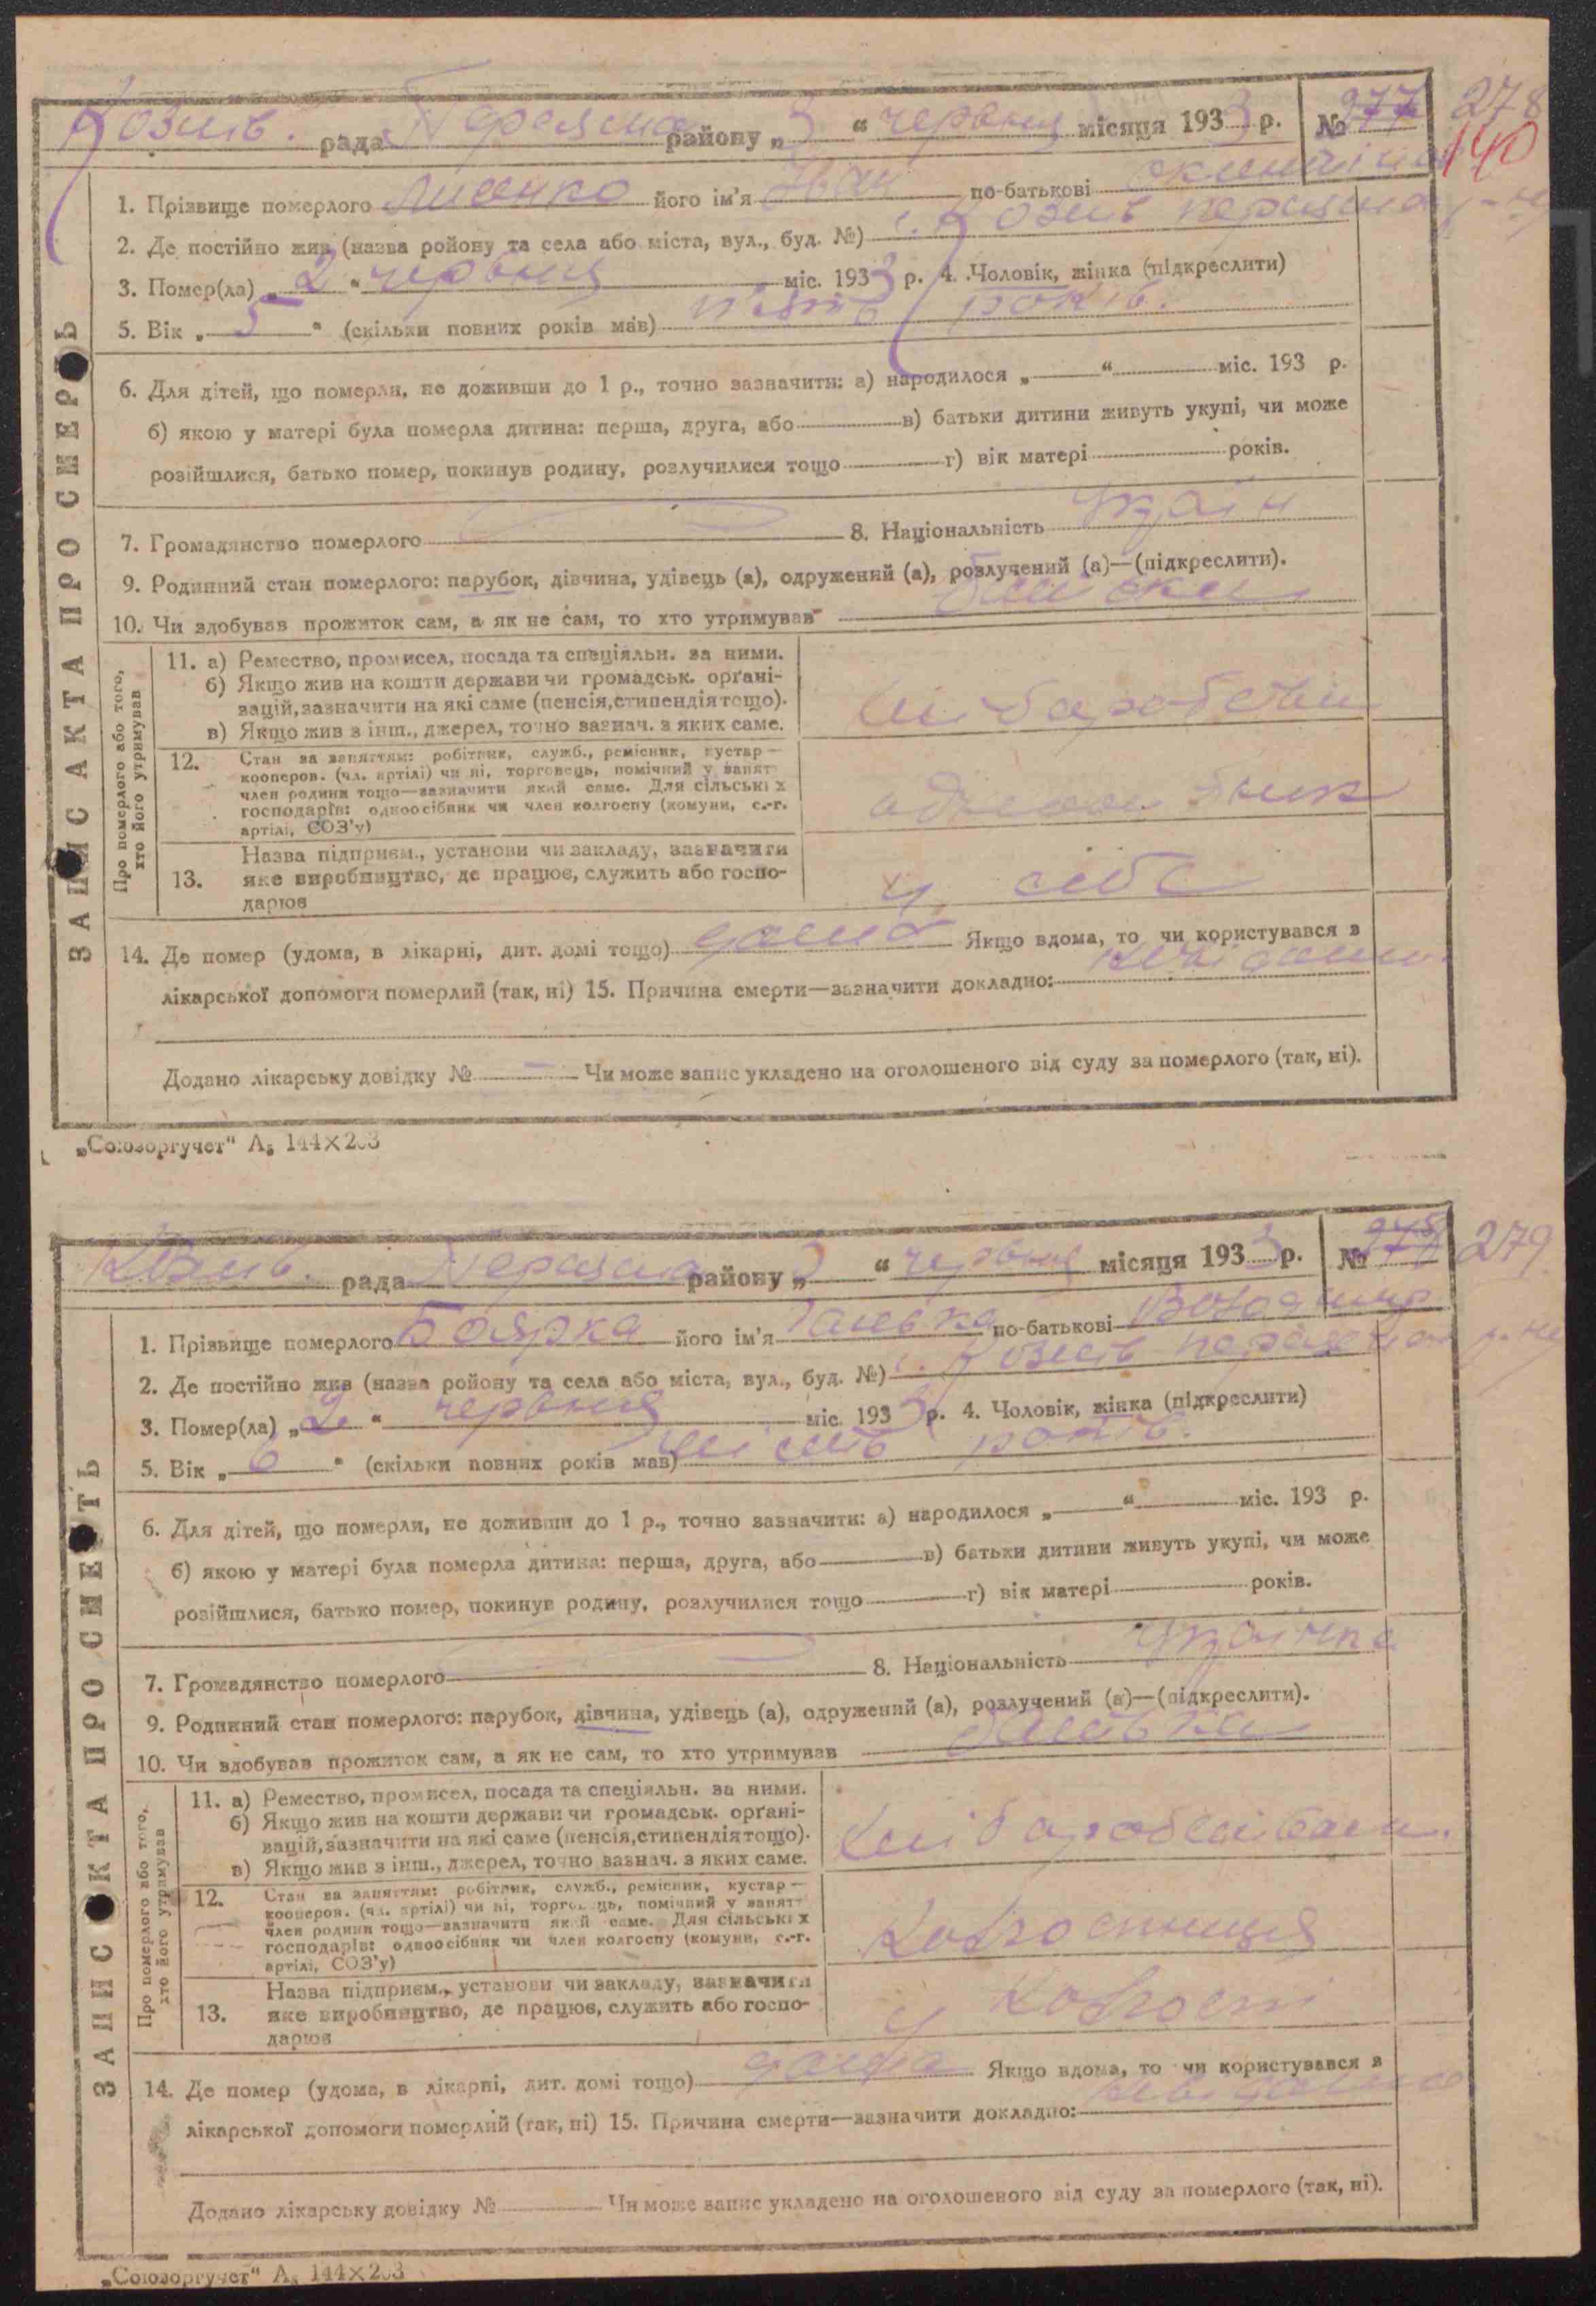 Козинс. рада Переяслав району „3“ червня місяця 1933 р. № 277 278
140
1. Прізвище померлого Лисенко його ім'я Іван по-батькові
2. Де постійно жив (назва ройону та села або міста, вул., буд. №) с. Козинс
3. Помер(ла) „2“ червня міс. 1933 р. 4. Чоловік, жінка (підкреслити)
5. Вік „5“ (скільки повних років мав) п'ять років.
6. Для дітей, що померли, не доживши до 1 р., точно зазначити: а) народилося „ “ міс. 193 р.
б) якою у матері була померла дитина: перша, друга, або в) батьки дитини живуть укупі, чи може
розійшлися, батько помер, покинув родину, розлучилися тощо г) вік матері років.
7. Громадянство померлого 8. Національність україн
9. Родинний стан померлого: парубок, дівчина, удівець (а), одружений (а), розлучений (а)—(підкреслити).
10. Чи здобував прожиток сам, а як не сам, то хто утримував батьки
ЗАПИС АКТА ПРО СМЕРТЬ
Про померлого або того, хто його утримував
11. а) Ремество, промисел, посада та спеціяльн. за ними.
б) Якщо жив на кошти держави чи громадськ. орґані-
зацій, зазначити на які саме (пенсія, стипендія тощо).
в) Якщо жив з інш., джерел, точно зазнач. з яких саме.
12. Стан за заняттям: робітник, служб., ремісник, кустар—
кооперов. (чл. артілі) чи ні, торговець, помічний у занят
член родини тощо—зазначити який саме. Для сільських
господарів: одноосібник чи член колгоспу (комуни, с.-г.
артілі, СОЗ'у) одноосібник
Назва підприєм., установи чи закладу, зазначити
13. яке виробництво, де працює, служить або госпо-
дарює у себе
14. Де помер (удома, в лікарні, дит. домі тощо) дома Якщо вдома, то чи користувався з
лікарської допомоги померлий (так, ні) 15. Причина смерти—зазначити докладно:
Додано лікарську довідку № — Чи може запис укладено на оголошеного від суду за померлого (так, ні).
„Союзоргучет“ А₅ 144×203
Козинс. рада Переяслав району „3“ червня місяця 1933 р. № 278 279
1. Прізвище померлого Боярка його ім'я Ганька по-батькові Володимир
2. Де постійно жив (назва ройону та села або міста, вул., буд. №) с. Козинс
3. Помер(ла) „2“ червня міс. 1933 р. 4. Чоловік, жінка (підкреслити)
5. Вік „6“ (скільки повних років мав) шість років.
6. Для дітей, що померли, не доживши до 1 р., точно зазначити: а) народилося „ “ міс. 193 р.
б) якою у матері була померла дитина: перша, друга, або в) батьки дитини живуть укупі, чи може
розійшлися, батько помер, покинув родину, розлучилися тощо г) вік матері років.
7. Громадянство померлого 8. Національність українка
9. Родинний стан померлого: парубок, дівчина, удівець (а), одружений (а), розлучений (а)—(підкреслити).
10. Чи здобував прожиток сам, а як не сам, то хто утримував батьки
ЗАПИС АКТА ПРО СМЕРТЬ
Про померлого або того, хто його утримував
11. а) Ремество, промисел, посада та спеціяльн. за ними.
б) Якщо жив на кошти держави чи громадськ. орґані-
зацій, зазначити на які саме (пенсія, стипендія тощо).
в) Якщо жив з інш., джерел, точно зазнач. з яких саме.
12. Стан за заняттям: робітник, служб., ремісник, кустар—
кооперов. (чл. артілі) чи ні, торговець, помічний у занят
член родини тощо—зазначити який саме. Для сільських
господарів: одноосібник чи член колгоспу (комуни, с.-г.
артілі, СОЗ'у) колгоспниця
Назва підприєм., установи чи закладу, зазначити
13. яке виробництво, де працює, служить або госпо-
дарює у колгоспі
14. Де помер (удома, в лікарні, дит. домі тощо) дома Якщо вдома, то чи користувався з
лікарської допомоги померлий (так, ні) 15. Причина смерти—зазначити докладно:
Додано лікарську довідку № Чи може запис укладено на оголошеного від суду за померлого (так, ні).
„Союзоргучет“ А₅ 144×203